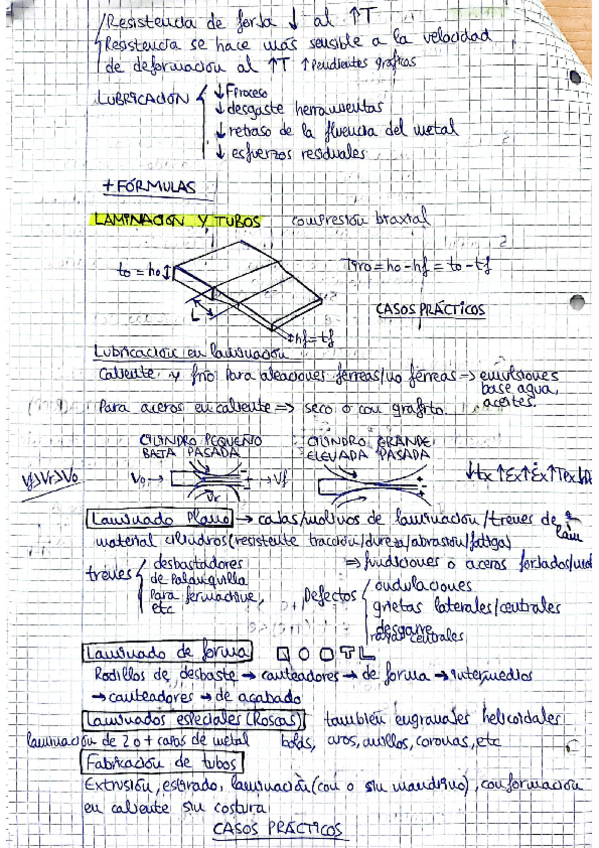 Resistencia de forja ↓ al ↑T
Resistencia se hace más sensible a la velocidad
de deformación al ↑T ↑ Pendientes gráficas
LUBRICACIÓN ↓ Fproceso
↓ desgaste herramientas
↓ retraso de la fluencia del metal
↓ esfuerzos residuales
+ FÓRMULAS
LAMINACIÓN Y TUBOS compresión biaxial
to = ho
L
hf = tf
Tiro = ho - hf = to - tf
CASOS PRÁCTICOS
Lubricación en laminación
Caliente y frío Para aleaciones férreas/no férreas → emulsiones
base agua,
aceites.
Para aceros en caliente => seco o con grafito.
CILINDRO PEQUEÑO
BAJA PASADA
CILINDRO GRANDE
ELEVADA PASADA
Vf>Vr>Vo
Vo → → Vf
Vr
Laminado Plano → cajas/molinos de laminación/trenes de lam
material cilindros (resistente tracción/dureza/abrasión/fatiga)
=> fundiciones o aceros forjados
trenes desbastadores
de palanquilla
Para fermachine,
etc
Defectos ondulaciones
grietas laterales/centrales
desgarre
centrales
Laminado de forma
Rodillos de desbaste → canteadores → de forma → intermedios
→ canteadores → de acabado
Laminados especiales (Roscas) también engranajes helicoidales
laminación de 2 o + capas de metal bolas, aros, anillos, coronas, etc
Fabricación de tubos
Extrusión, estirado, laminación (con o sin mandrino), conformación
en caliente sin costura
CASOS PRÁCTICOS